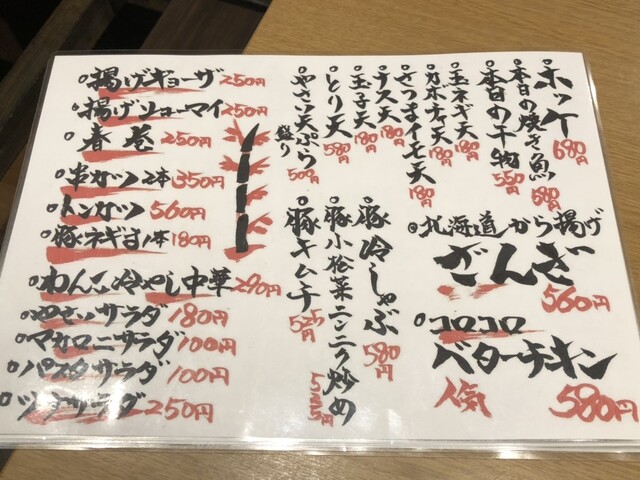 揚げギョーザ 250円
揚げショーマイ 250円
春巻 250円
串カツ 2本 350円
トンカツ 560円
豚ネギ 1本 180円
わんこ冷やし中華 290円
やさいサラダ 180円
マカロニサラダ 100円
パスタサラダ 100円
ツナサラダ 250円
ホッケ 680円
本日の焼き魚 680円
本日の干物 550円
玉ネギ天 180円
カボチャ天 180円
さつまイモ天 180円
ナス天 180円
玉子天 180円
とり天 580円
やさい天ぷら盛り 500円
北海道から揚げ
ざんぎ 560円
コロコロ
バターチキン
人気 580円
豚冷しゃぶ 580円
豚小松菜ニンニク炒め 525円
豚キムチ 525円